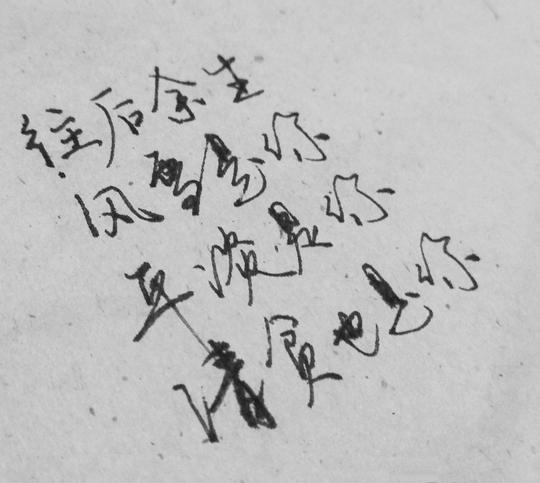 往后余生
风雪是你
是你
清贫也是你